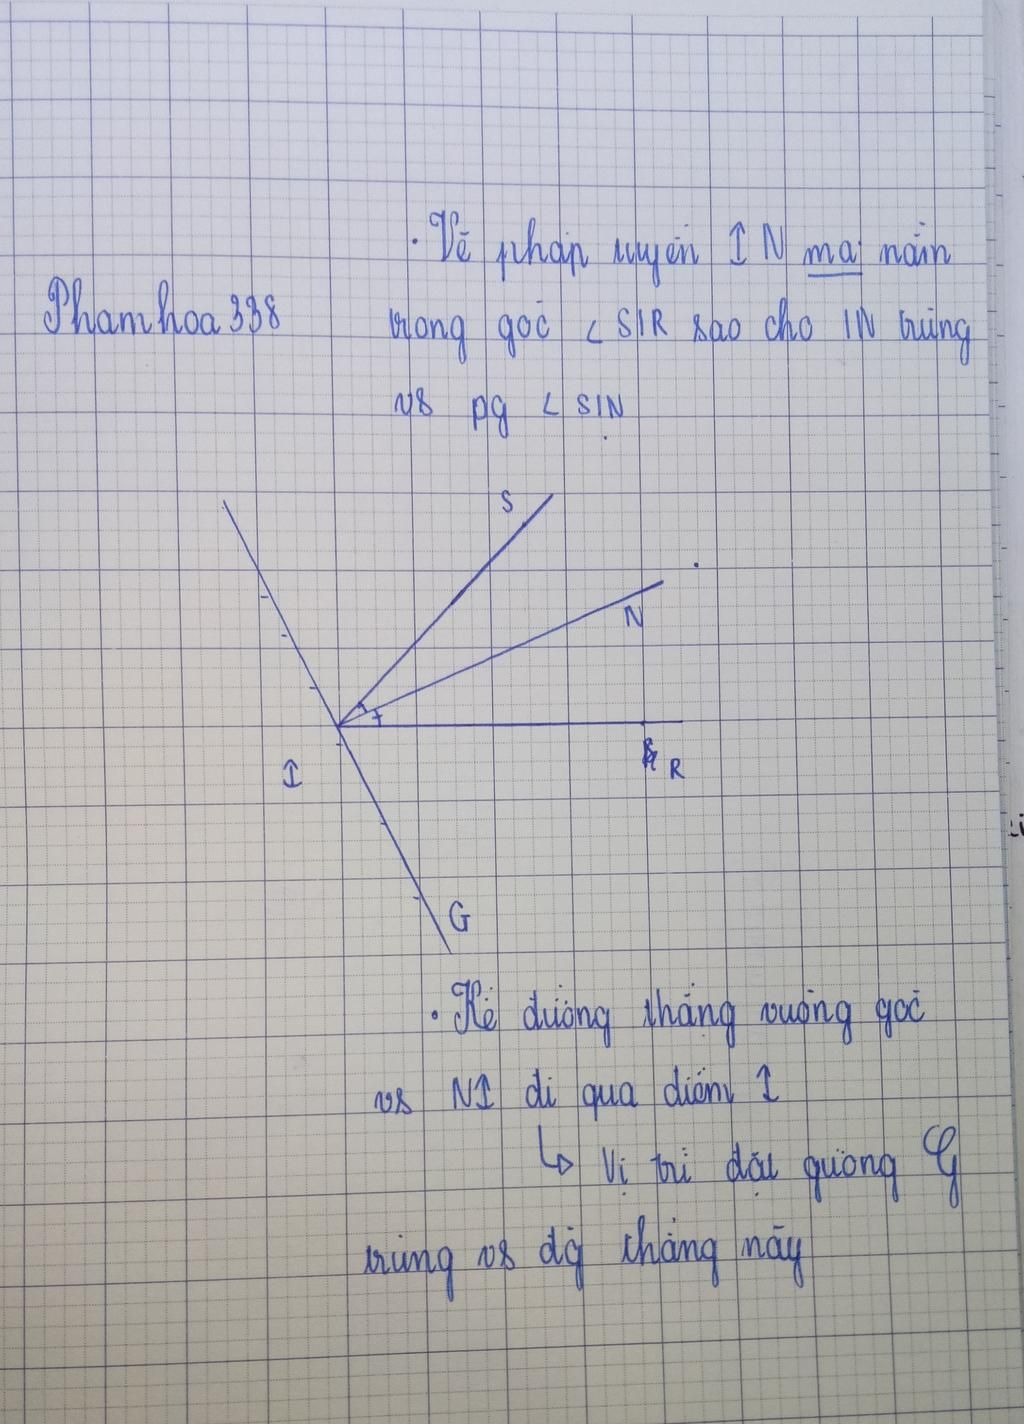 . Vẽ pháp tuyến IN mà nằm
Phamhoa338
trong góc ∠ SIR sao cho IN trùng
vs pg ∠ SIN
S
N
I
R
G
. Kẻ đường thẳng vuông góc
vs NI đi qua điểm I
↳ Vị trí đặt gương G
trùng vs đg thẳng này